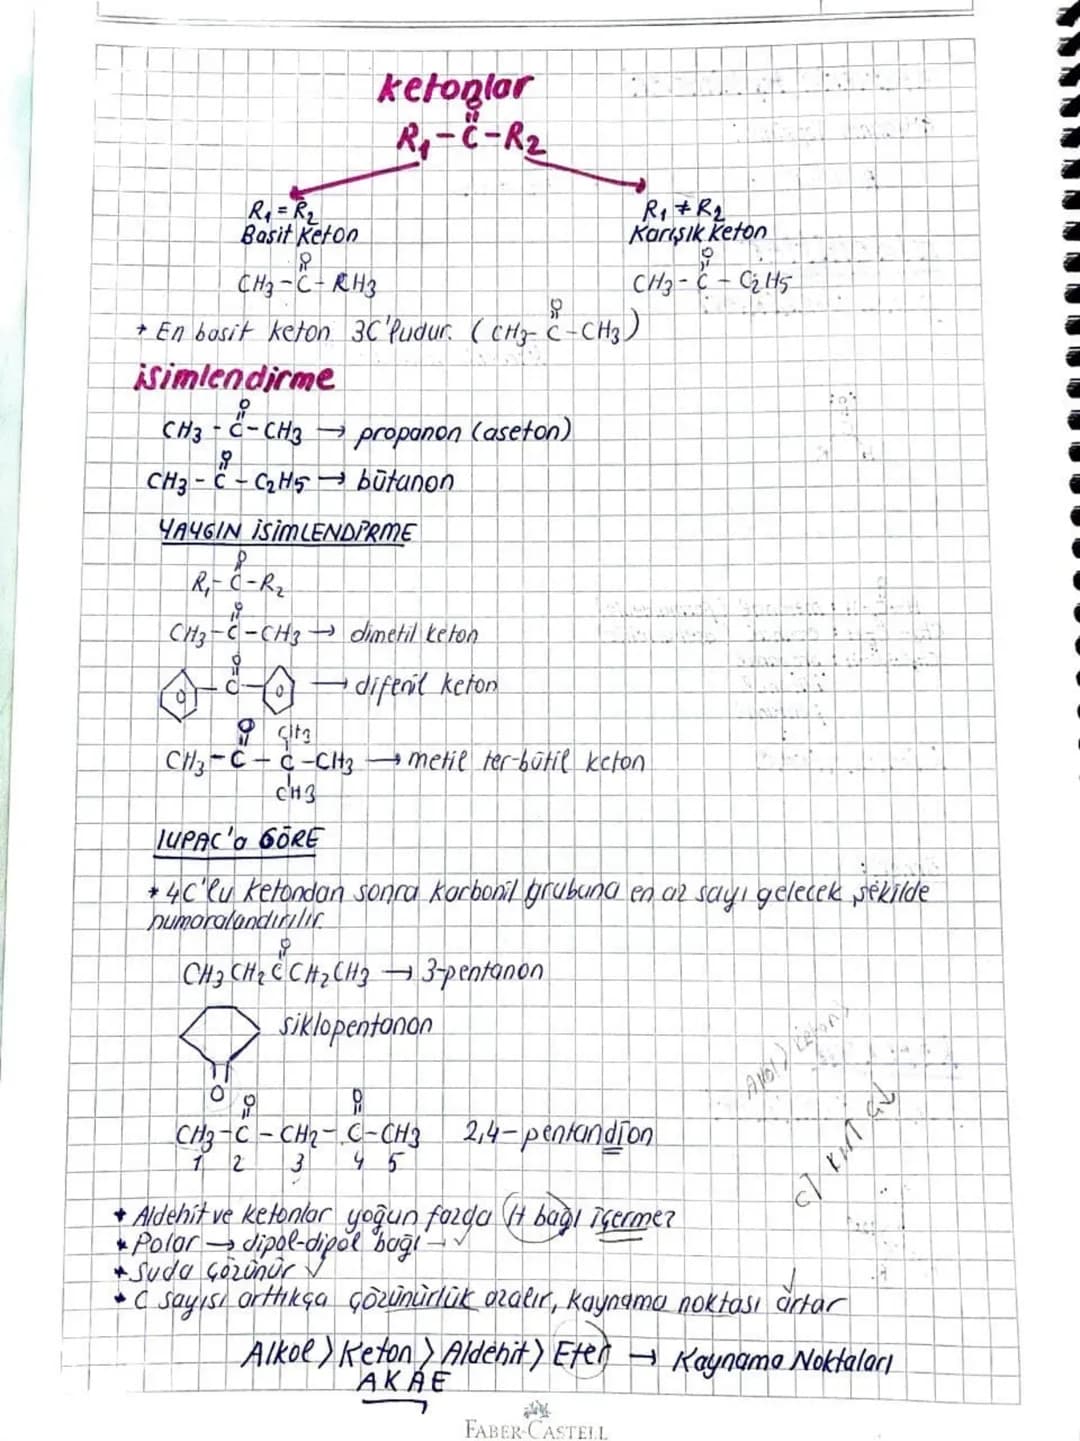 ketonlar
O
R₁-C-R₂
R₁ = R₂ R₁ ≠ R₂
Basit Keton Karışık Keton
O O
CH₃-C-CH₃ CH₃-C-C₂H₅
O
+ En basit keton 3C'ludur. (CH₃-C-CH₃)
isimlendirme
O
CH₃-C-CH₃ → propanon (aseton)
O
CH₃-C-C₂H₅ → bütanon
YAYGIN İSİMLENDİRME
O
R₁-C-R₂
O
CH₃-C-CH₃ → dimetil keton
O
C → difenil keton
O CH₃
CH₃-C-C-CH₃ → metil ter-bütil keton
CH₃
IUPAC'a GÖRE
* 4C'lu ketondan sonra karbonil grubuna en az sayı gelecek şekilde
numaralandırılır.
O
CH₃CH₂CCH₂CH₃ → 3-pentanon
siklopentanon
O
O O
CH₃-C-CH₂-C-CH₃ 2,4-pentandion
1 2 3 4 5
+ Aldehit ve ketonlar yoğun fazda H bağı içermez
* Polar → dipol-dipol bağı
+ Suda çözünür √
* C sayısı arttıkça çözünürlük azalır, kaynama noktası artar
Alkol > Keton > Aldehit > Eter → Kaynama Noktaları
AKAE
FABER-CASTELL